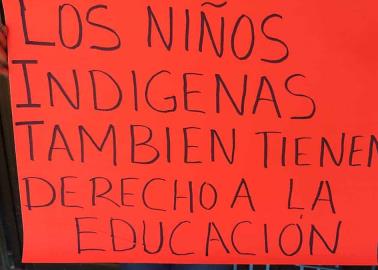 LOS NIÑOS
INDIGENAS
TAMBIEN TIENEN
DERECHO A LA
EDUCACIÓN